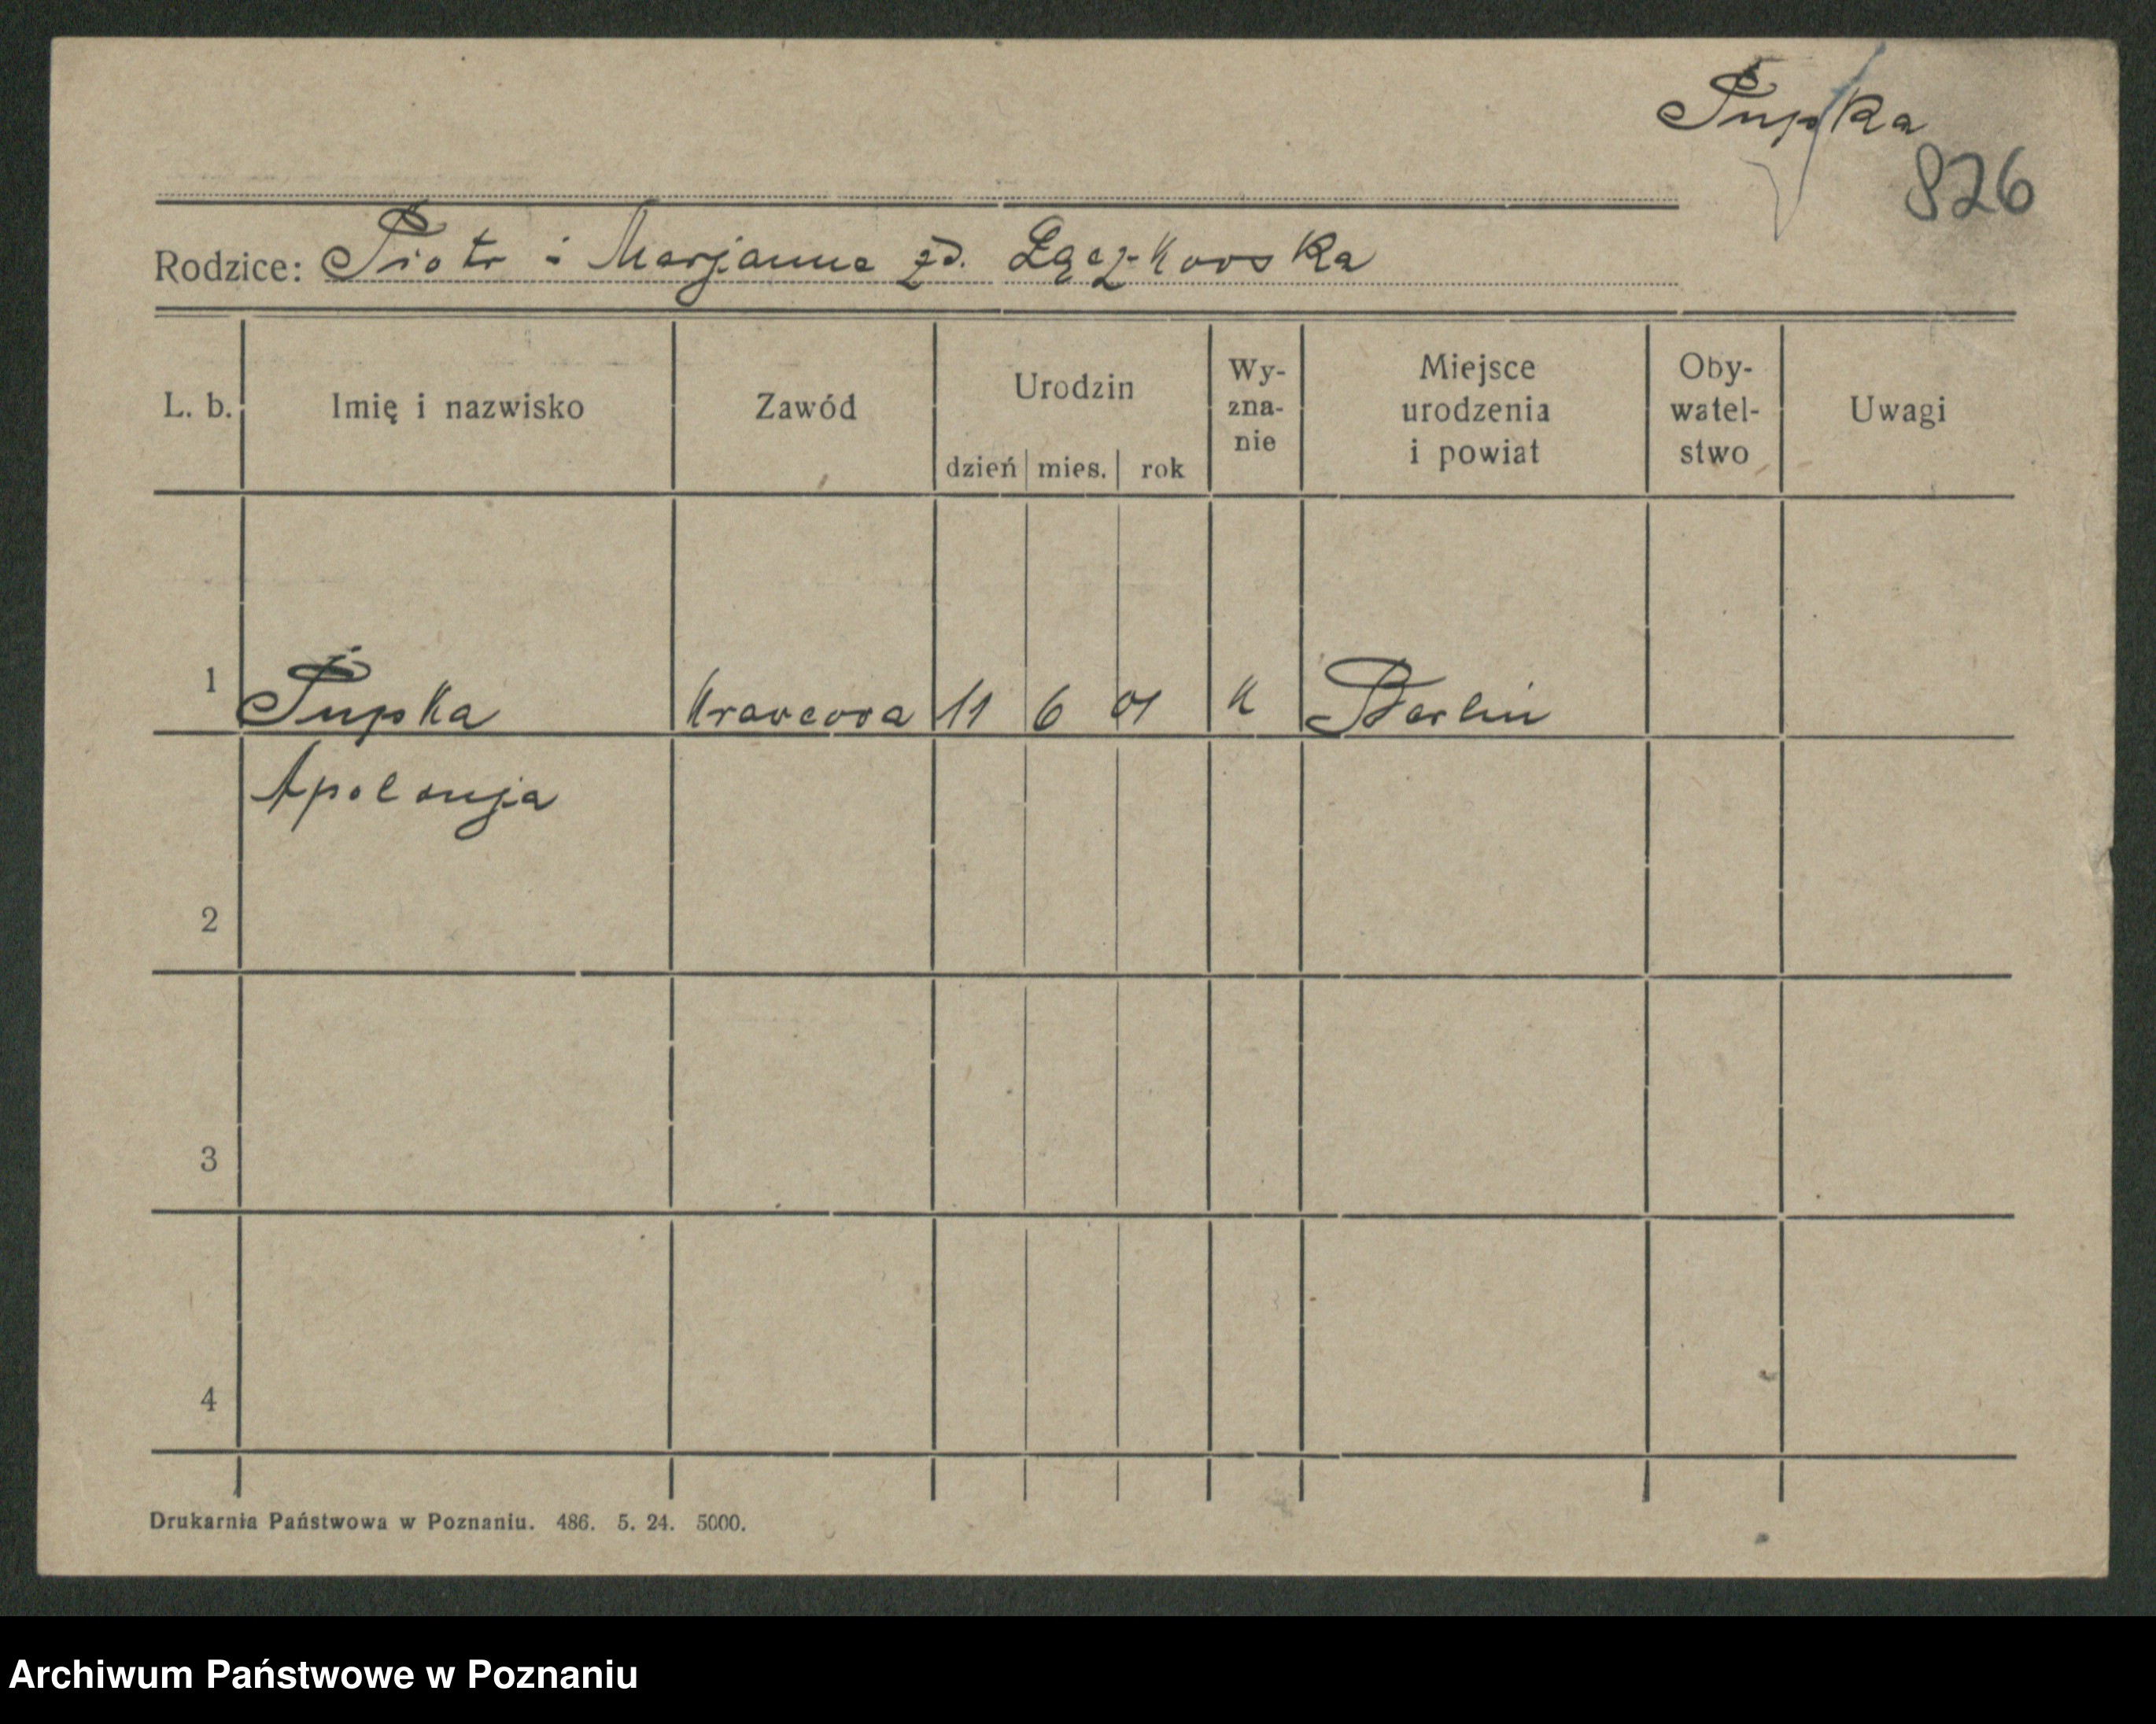 Pupka
826
Rodzice: Piotr i Marjanna zd. Łączkowska
L. b. Imię i nazwisko Zawód Urodzin dzień mies. rok Wyzna-nie Miejsce urodzenia i powiat Oby-watel-stwo Uwagi
1 Pupka Krawcowa 11 6 01 K Berlin
Apolonja
2
3
4
Drukarnia Państwowa w Poznaniu. 486. 5. 24. 5000.
Archiwum Państwowe w Poznaniu